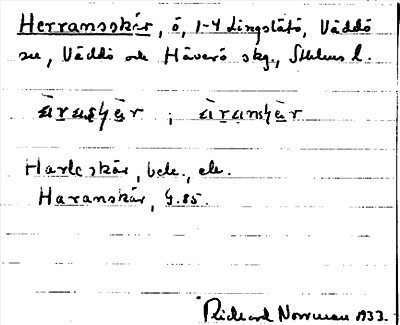 Herransskär, ö, 1-4 Lingslätö, Väddö
sn, Väddö och Häverö skg., Sthlms l.
Harleskär, bebe., ele.
Haranskär, G.85.
Rickard Norrman 1933.